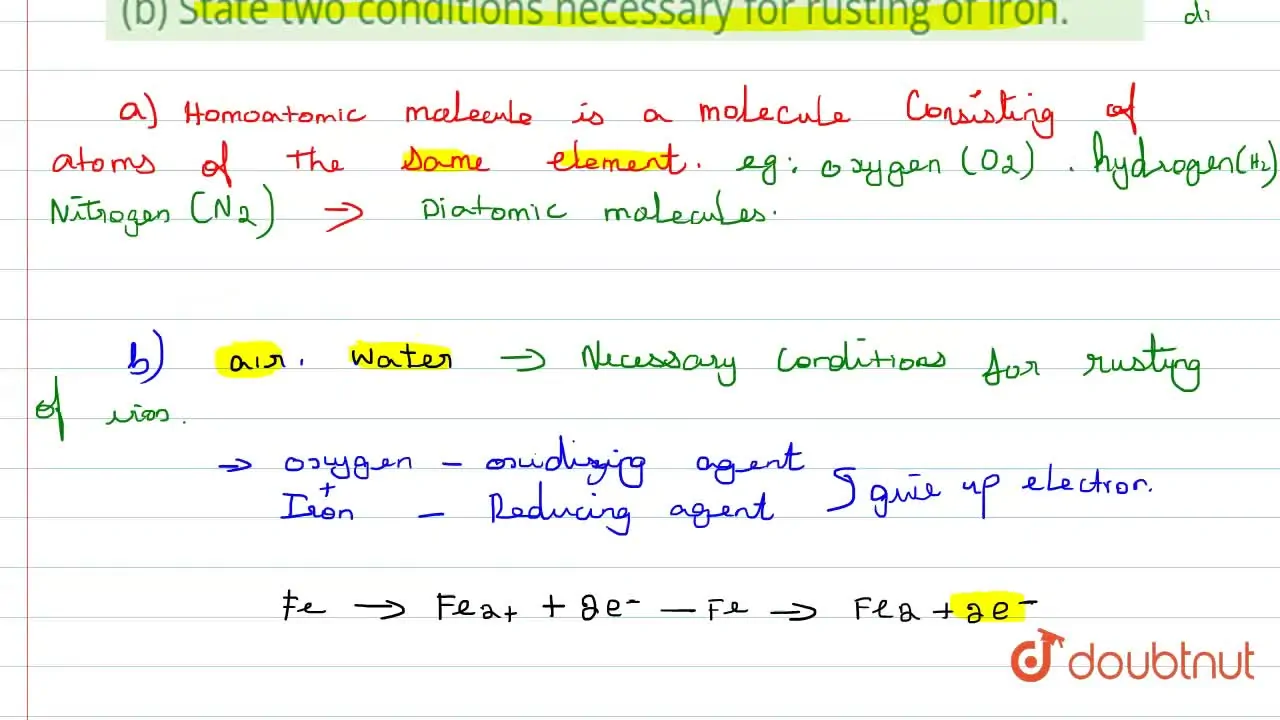 (b) State two conditions necessary for rusting of iron.
di
a) Homoatomic molecule is a molecule Consisting of
atoms of the same element. eg: oxygen (O2) . hydrogen (H2)
Nitrogen (N2) → Diatomic molecules.
b) air. Water → Necessary Conditions for rusting
of iron.
→ oxygen - oxidizing agent
+
Iron - Reducing agent
give up electron.
Fe → Fe2+ + 2e⁻ — Fe → Fe2 + 2e⁻
doubtnut